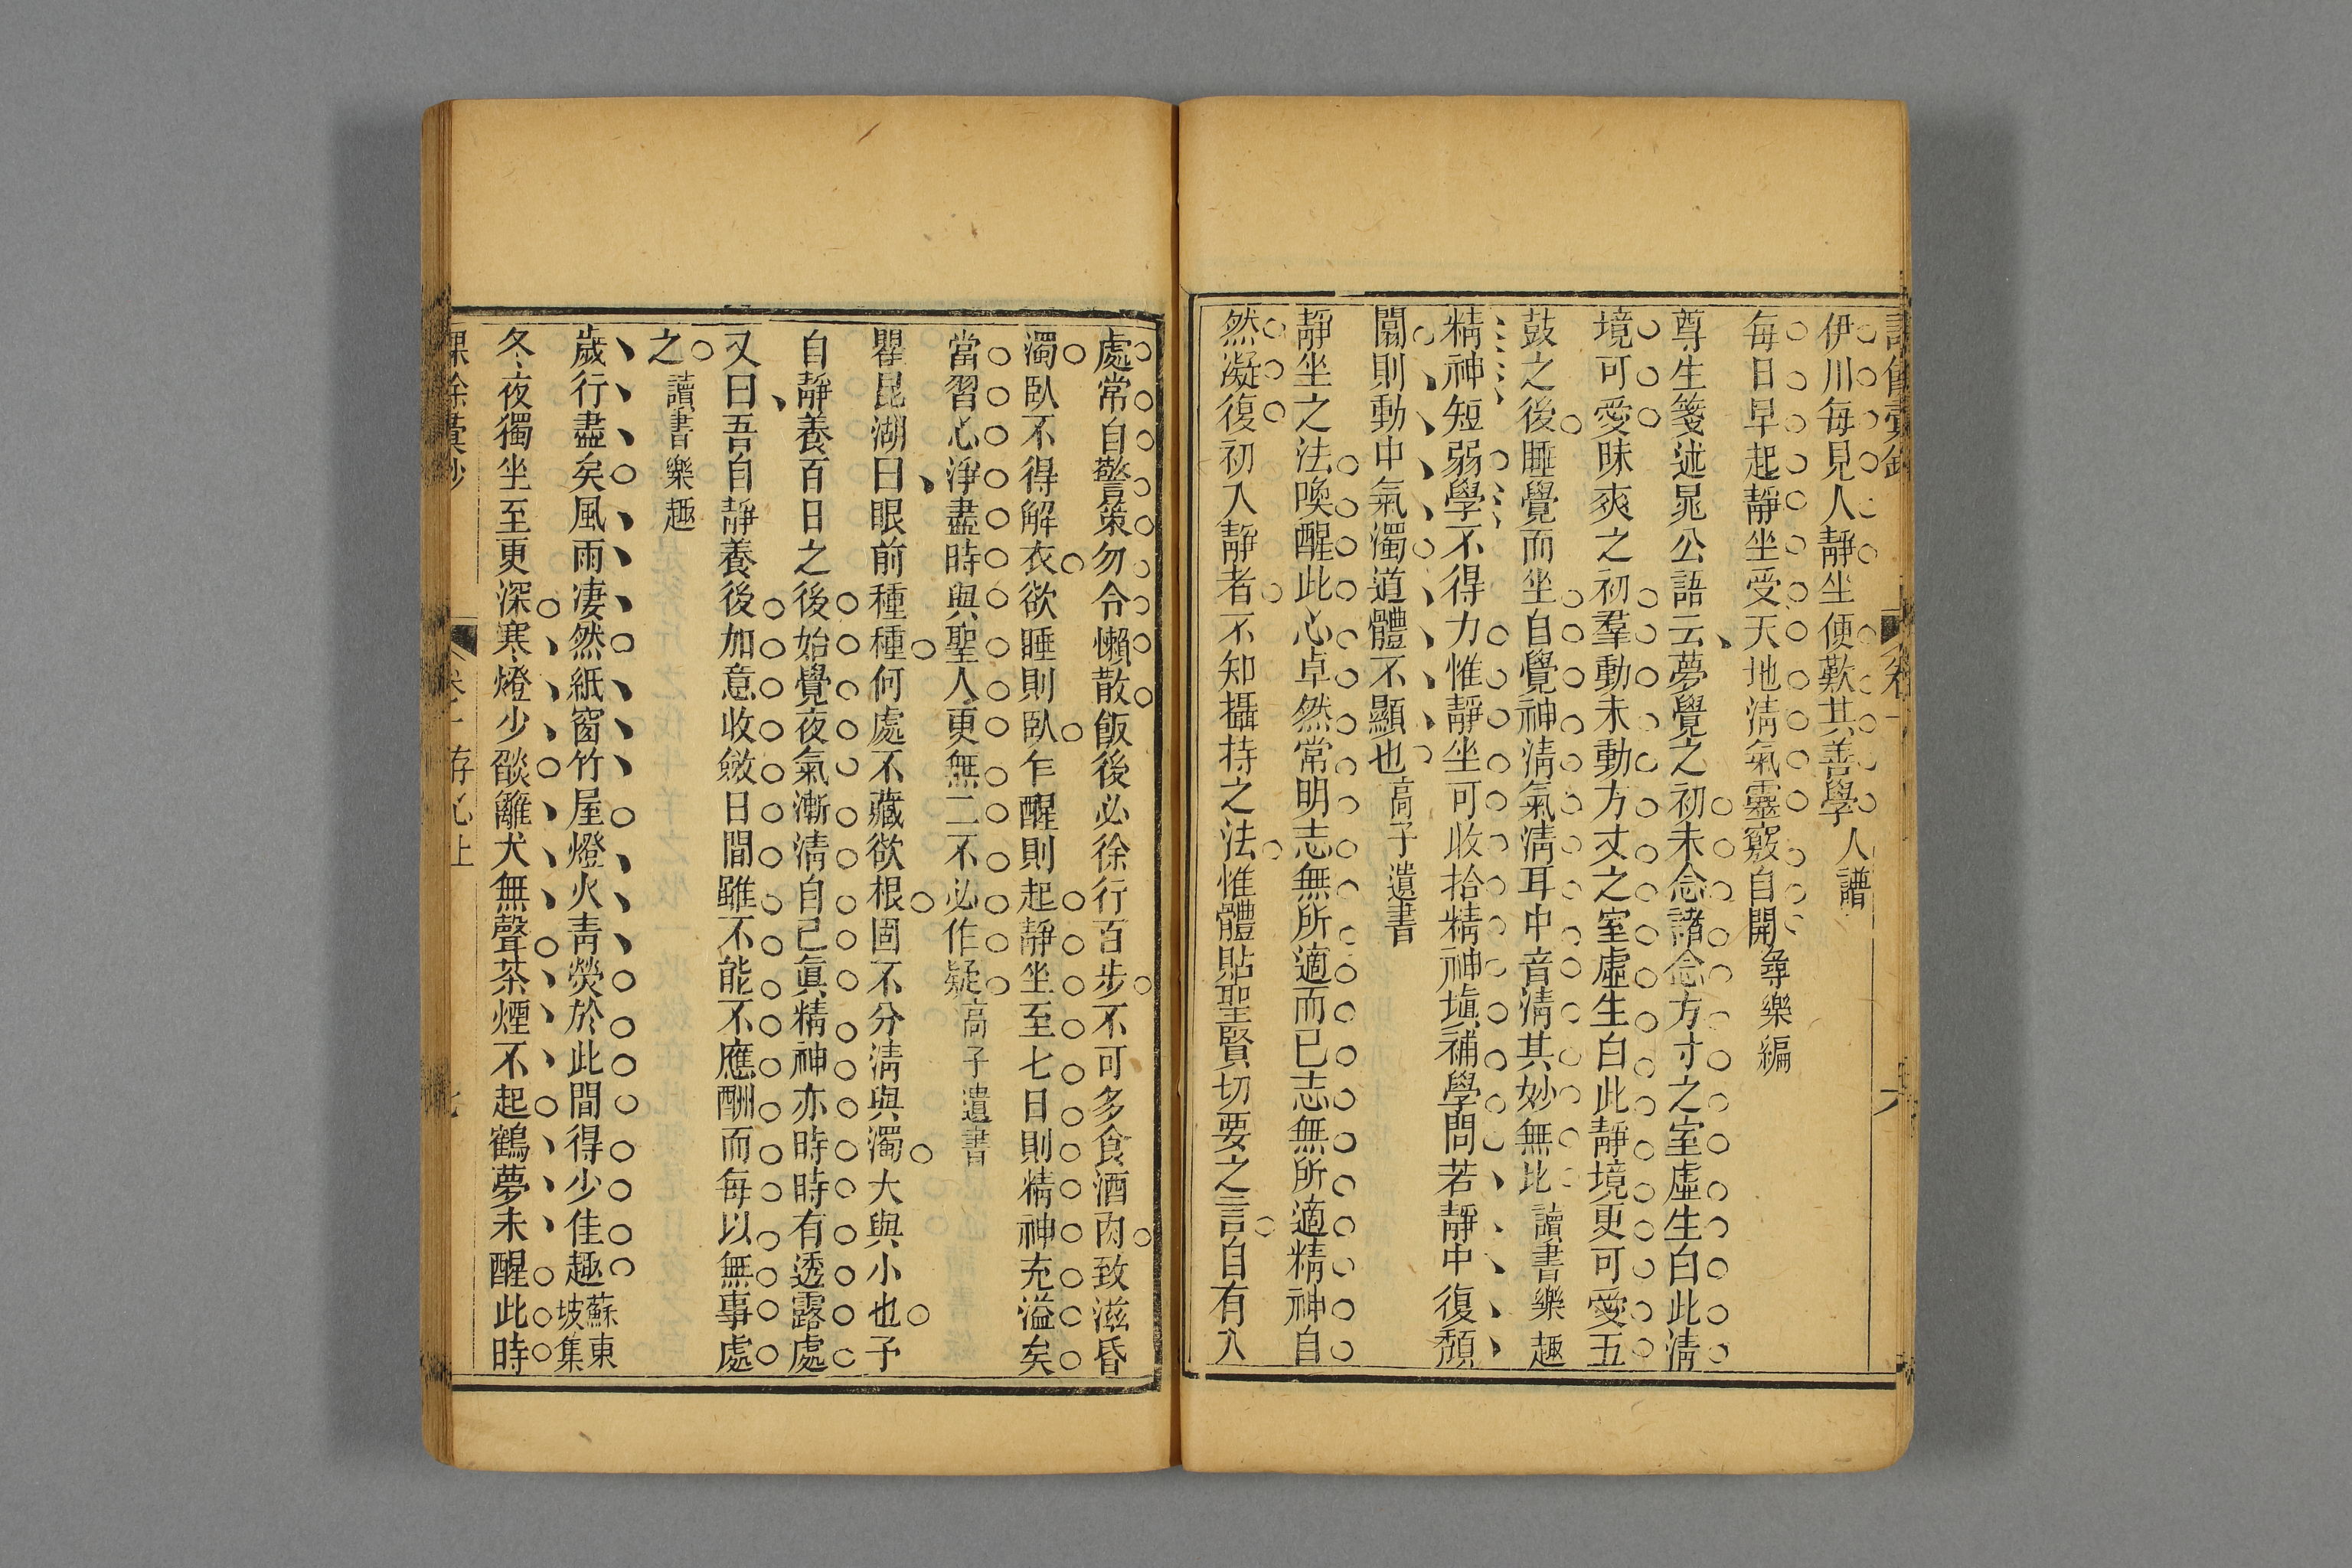 伊川每見人靜坐便歎其善學人譜
每日早起靜坐受天地淸氣靈竅自開尋樂編
尊生箋述晁公語云夢覺之初未念諸念方寸之室虛生白此淸
境可愛昧爽之初羣動未動方丈之室虛生白此靜境更可愛五
鼓之後睡覺而坐自覺神淸氣淸耳中音淸其妙無比讀書樂趣
精神短弱學不得力惟靜坐可收拾精神塡補學問若靜中復頹
闒則動中氣濁道體不顯也高子遺書
靜坐之法喚醒此心卓然常明志無所適而已志無所適精神自
然凝復初入靜者不知攝持之法惟體貼聖賢切要之言自有入
處常自警策勿令懶散飯後必徐行百步不可多食酒肉致滋昏
濁臥不得解衣欲睡則臥乍醒則起靜坐至七日則精神充溢矣
當習心淨盡時與聖人更無二不必作疑高子遺書
瞿昆湖曰眼前種種何處不藏欲根固不分淸與濁大與小也予
自靜養百日之後始覺夜氣漸淸自己眞精神亦時時有透露處
又曰吾自靜養後加意收斂日間雖不能不應酬而每以無事處
之讀書樂趣
歲行盡矣風雨凄然紙窗竹屋燈火靑熒於此間得少佳趣蘇東坡集
冬夜獨坐至更深寒燈少燄籬犬無聲茶煙不起鶴夢未醒此時
存心上